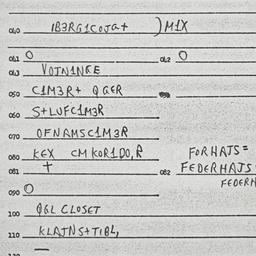 040 1B3RG1COJG+ ) M1X
041 O 042 O
043 VOTN1NGE
050 C1M3R+ QGER
060 S+LUFC1M3R
070 OFNAMSC1M3R
080 KEX CMKOR1DO,R FORHATS=
081 + 082 FEDERHATS=
FEDERH
090 O
100 QGL CLOSET
110 KLATNS+T1BL,